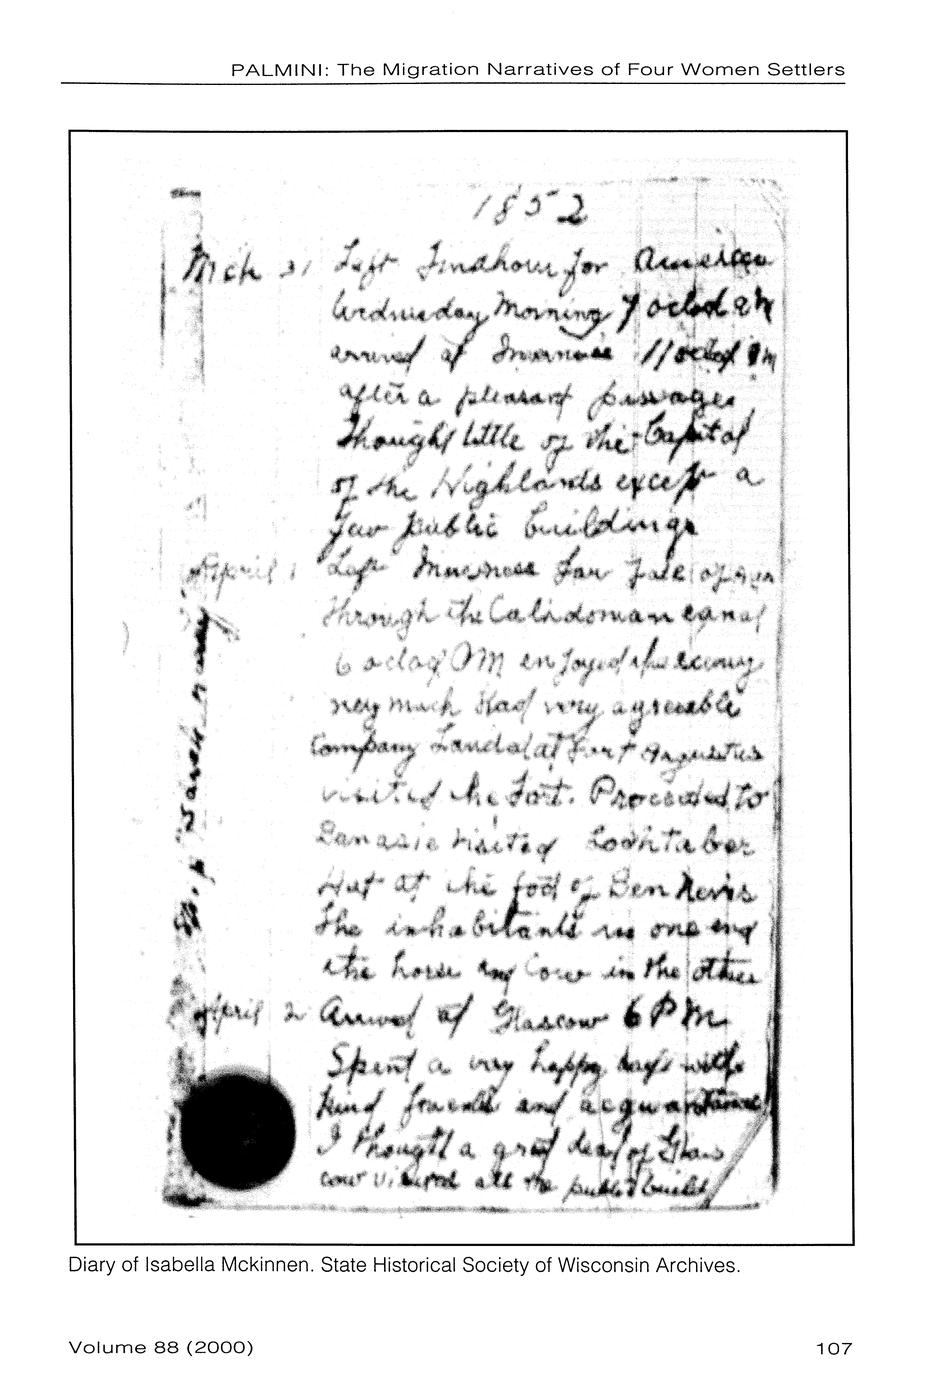 PALMINI: The Migration Narratives of Four Women Settlers
1852
Mch 31 Left Findhorn for American
Wednesday Morning 7 oclock
arrived at Inverness 11 oclock
after a pleasant passage
Thought little of the Capital
of the Highlands except a
few public buildings
April 1 Left Inverness for
Through the Calidonian canal
6 oclock PM enjoyed the
very much Had very agreeable
Company Landed at Fort Argustus
visited the Fort. Proceeded to
visited Lochtaber
Hut at the foot of Ben Nevis
The inhabitants in one end
the horse and Cow in the other
April 2 Arrived at Glascow 6 PM
Spent a very happy days with
kind friends and acquantance
I thought a great deal of Glas
cow all the public build
Diary of Isabella Mckinnen. State Historical Society of Wisconsin Archives.
Volume 88 (2000)
107